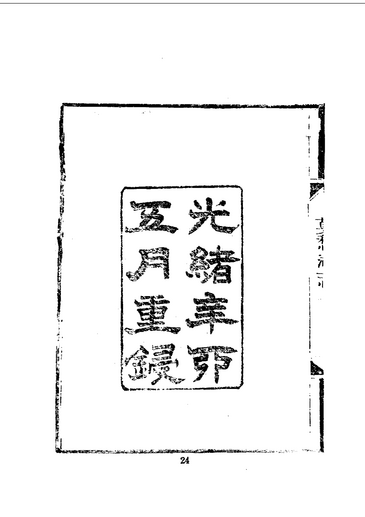 光緒辛卯
五月重鋟
24